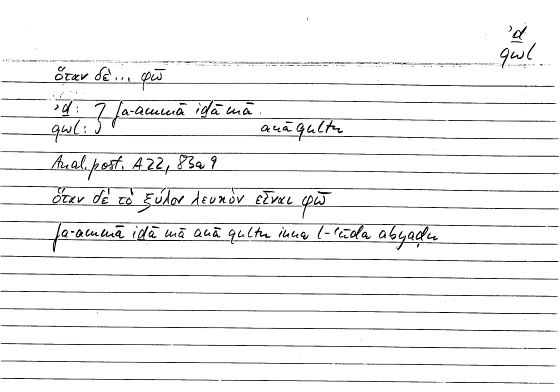 ʾḏ
qwl
ὅταν δὲ... φῶ
ʾḏ: } fa-ammā iḏā mā
qwl: anā qultu
Anal. post. A 22, 83a9
ὅταν δὲ τὸ ξύλον λευκὸν εἶναι φῶ
fa-ammā iḏā mā anā qultu inna l-ʿūda abyaḍu